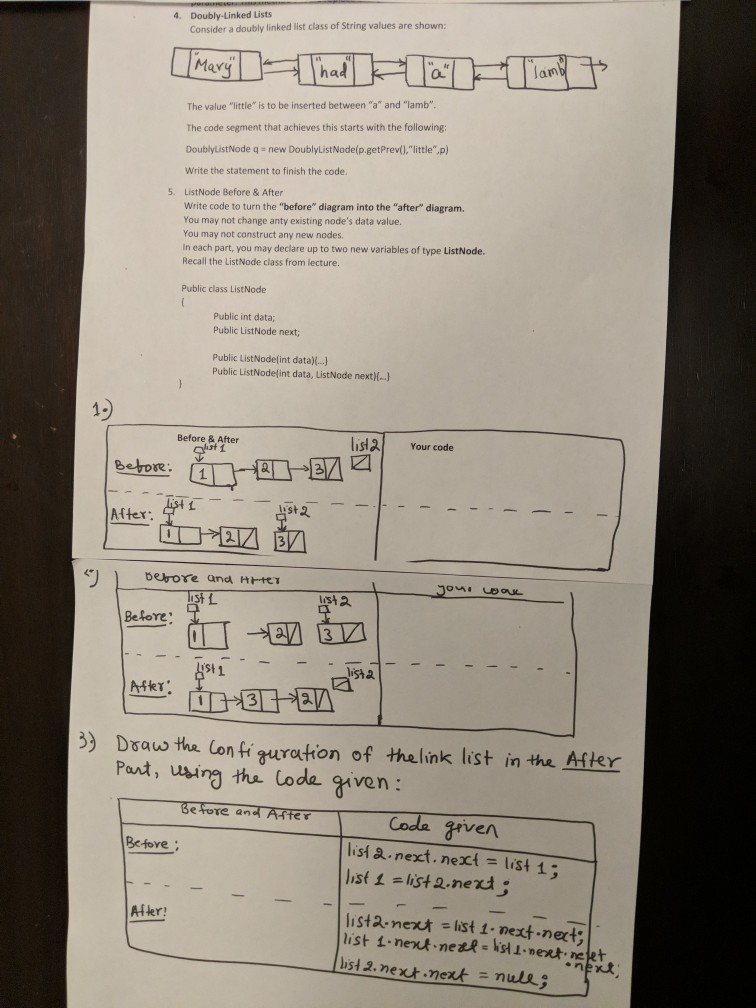 4. Doubly-Linked Lists
Consider a doubly linked list class of String values are shown:
"Mary" "had" "a" "lamb"
The value "little" is to be inserted between "a" and "lamb".
The code segment that achieves this starts with the following:
DoublyListNode q = new DoublyListNode(p.getPrev(),"little",p)
Write the statement to finish the code.
5. ListNode Before & After
Write code to turn the "before" diagram into the "after" diagram.
You may not change anty existing node's data value.
You may not construct any new nodes.
In each part, you may declare up to two new variables of type ListNode.
Recall the ListNode class from lecture.
Public class ListNode
{
Public int data;
Public ListNode next;
Public ListNode(int data){...}
Public ListNode(int data, ListNode next){...}
}
1.)
Before & After Your code
list 1 list2
Before: 1 2 3
list 1 list 2
After: 1 2 3
before and After your code
list 1 list 2
Before: 1 2 3
list 1 list 2
After: 1 3 2
3) Draw the Configuration of the link list in the After
Part, using the Code given:
Before and After Code given
Before: list 2.next.next = list 1;
list 1 = list 2.next;
After: list2.next = list 1.next.next;
list 1.next.next = list 1.next.next
.next;
list 2.next.next = null;